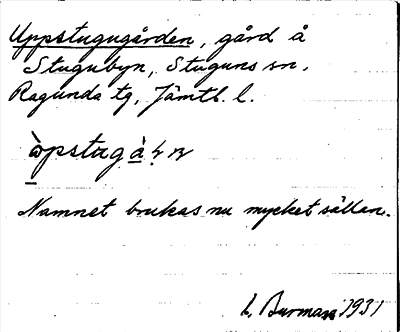 Uppstugugården, gård å
Stugubyn, Stuguns sn.
Ragunda tg, Jämtl. l.
Namnet brukas nu mycket sällan.
L. Burman 1931